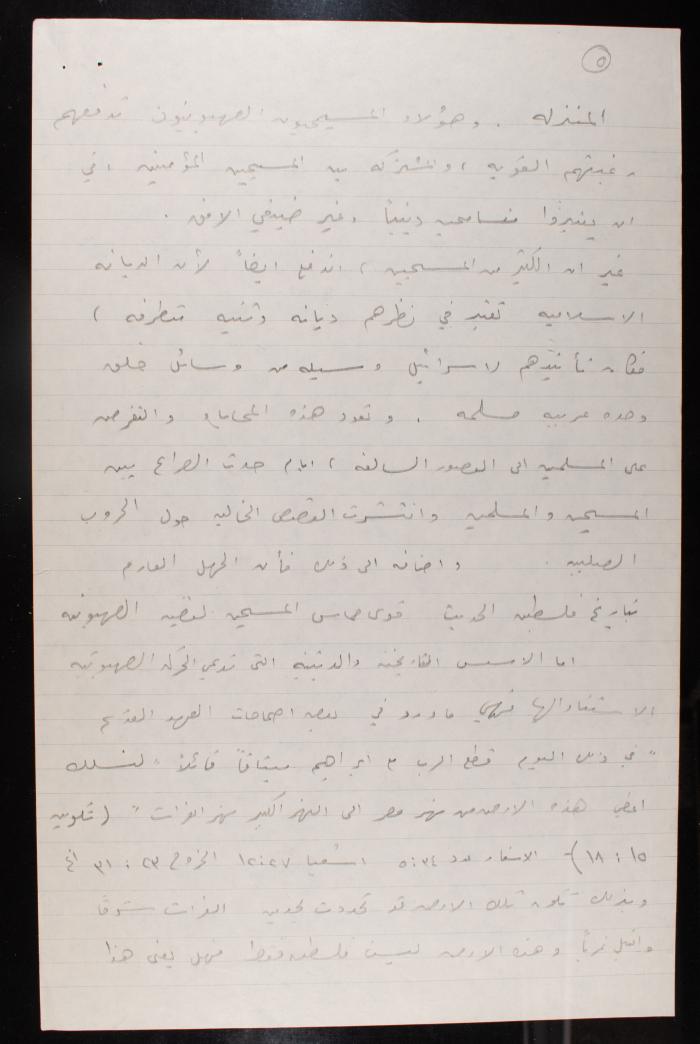 ٥
المنزله . وهؤلاء المسيحيون الصهيونيون تدفعهم
رغبتهم القويه ، والمشتركه بين المسيحيين المؤمنين ، في
ان يعتبروا متسامحين دينياً وغير ضيقي الافق .
غير ان الكثير من المسيحيين ، اندفع ايضاً لأن الديانه
الاسلاميه تعتبر في نظرهم ديانه وثنيه متطرفه ،
فكان تأييدهم لاسرائيل وسيله من وسائل خلق
وحده عربيه مسلمه . وتعود هذه و
على المسلمين الى العصور السالفه ، ايام حدث الصراع بين
المسيحيين والمسلمين وانتشرت القصص الخياليه حول الحروب
الصليبيه . واضافه الى ذلك فأن الجهل العارم
بتاريخ فلسطين الحديث قوى حماس المسيحيين لقضيه الصهيونيه
اما الاسس التاريخيه والدينيه التي تدعي الحركه الصهيونيه
الاستناد الها فهي ماورد في بعض اصحاحات العهد القديم
" في ذلك اليوم قطع الرب مع ابراهيم ميثاقاً قائلاً " لنسلك
اعطي هذه الارض من نهر مصر الى النهر الكبير نهر الفرات " ( تكوين
١٥ : ١٨ ) الاسفار عدد ٣٤ : ٥ اشعيا ٢٧ : ١٢ الخروج ٢٣ : ٣١ الخ
وبذلك تكون تلك الارض قد تحددت بحدين الفرات شرقاً
والنيل غرباً وهذه الارض ليست فلسطين فقط فهل يعنى هذا